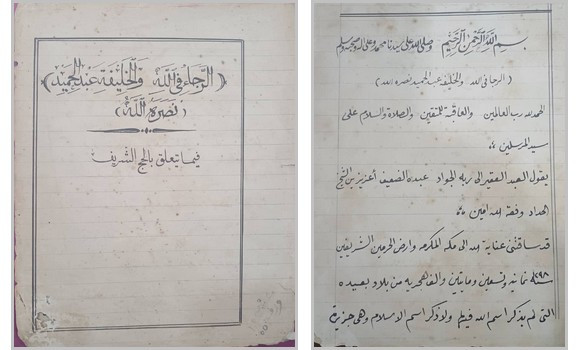 (الرجاء في الله والخليفة عبد الحميد)
(نصره الله)
فيما يتعلق بالحج الشريف
بسم الله الرحمن الرحيم وصلى الله على سيدنا محمد وعلى آله وصحبه وسلم
(الرجا في الله والخليفة عبد الحميد نصره الله)
الحمد لله رب العالمين والعاقبة للمتقين والصلاة والسلام على
سيد المرسلين
يقول العبد الفقير الى ربه الجواد عبده الضعيف أعزيز بن الشيخ
الحداد وفقه الله امين
قد ساقتني عناية الله الى مكة المكرمه وارض الحرمين الشريفين
سنة ١٢٩٨ ثمانيه وتسعين ومايتين والف هجريه من بلاد بعيده
التي لم يذكر اسم الله فيهم ولا ذكر اسم الاسلام وهي جزيرة